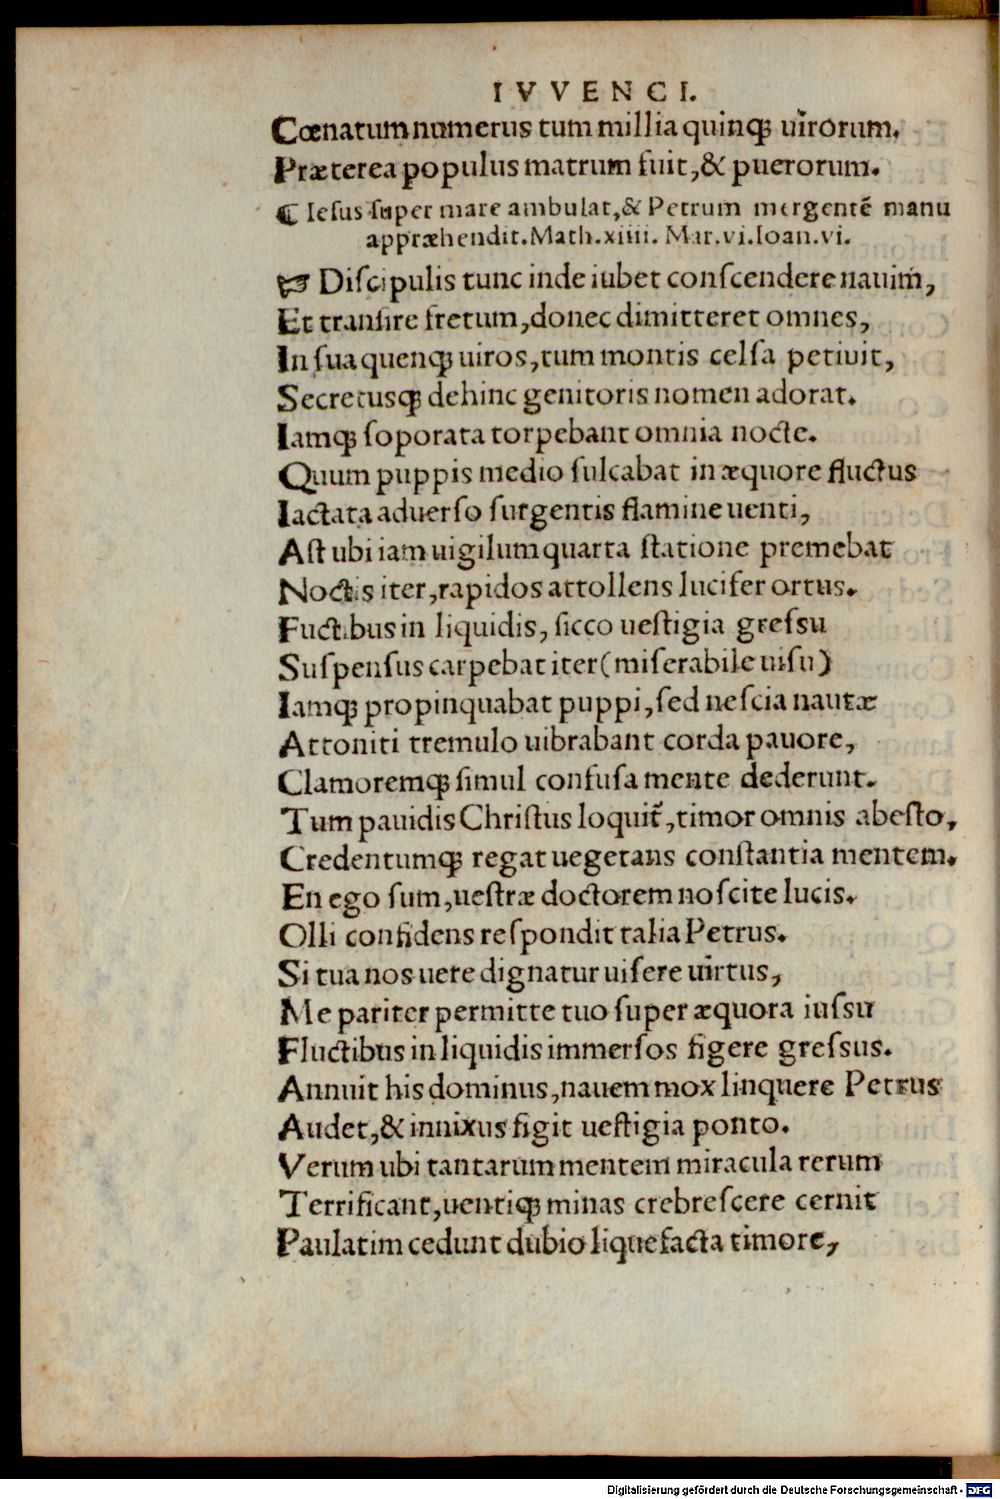 IVVENCI.
Cœnatum numerus tum millia quinqꝫ uirorum.
Præterea populus matrum fuit, & puerorum.
¶ Iesus super mare ambulat, & Petrum mergentẽ manu
appræhendit. Math. xiiii. Mar. vi. Ioan. vi.
☞ Discipulis tunc inde iubet conscendere nauim,
Et transire fretum, donec dimitteret omnes,
In sua quenqꝫ uiros, tum montis celsa petiuit,
Secretusqꝫ dehinc genitoris nomen adorat.
Iamqꝫ soporata torpebant omnia nocte.
Quum puppis medio sulcabat in æquore fluctus
Iactata aduerso surgentis flamine uenti,
Ast ubi iam uigilum quarta statione premebat
Noctis iter, rapidos attollens lucifer ortus.
Fuctibus in liquidis, sicco uestigia gressu
Suspensus carpebat iter (miserabile uisu)
Iamqꝫ propinquabat puppi, sed nescia nautæ
Attoniti tremulo uibrabant corda pauore,
Clamoremqꝫ simul confusa mente dederunt.
Tum pauidis Christus loquit̃, timor omnis abesto,
Credentumqꝫ regat uegetans constantia mentem.
En ego sum, uestræ doctorem noscite lucis.
Olli confidens respondit talia Petrus.
Si tua nos uere dignatur uisere uirtus,
Me pariter permitte tuo super æquora iussu
Fluctibus in liquidis immersos figere gressus.
Annuit his dominus, nauem mox linquere Petrus
Audet, & innixus figit uestigia ponto.
Verum ubi tantarum mentem miracula rerum
Terrificant, uentiqꝫ minas crebrescere cernit
Paulatim cedunt dubio liquefacta timore,
Digitalisierung gefördert durch die Deutsche Forschungsgemeinschaft - DFG